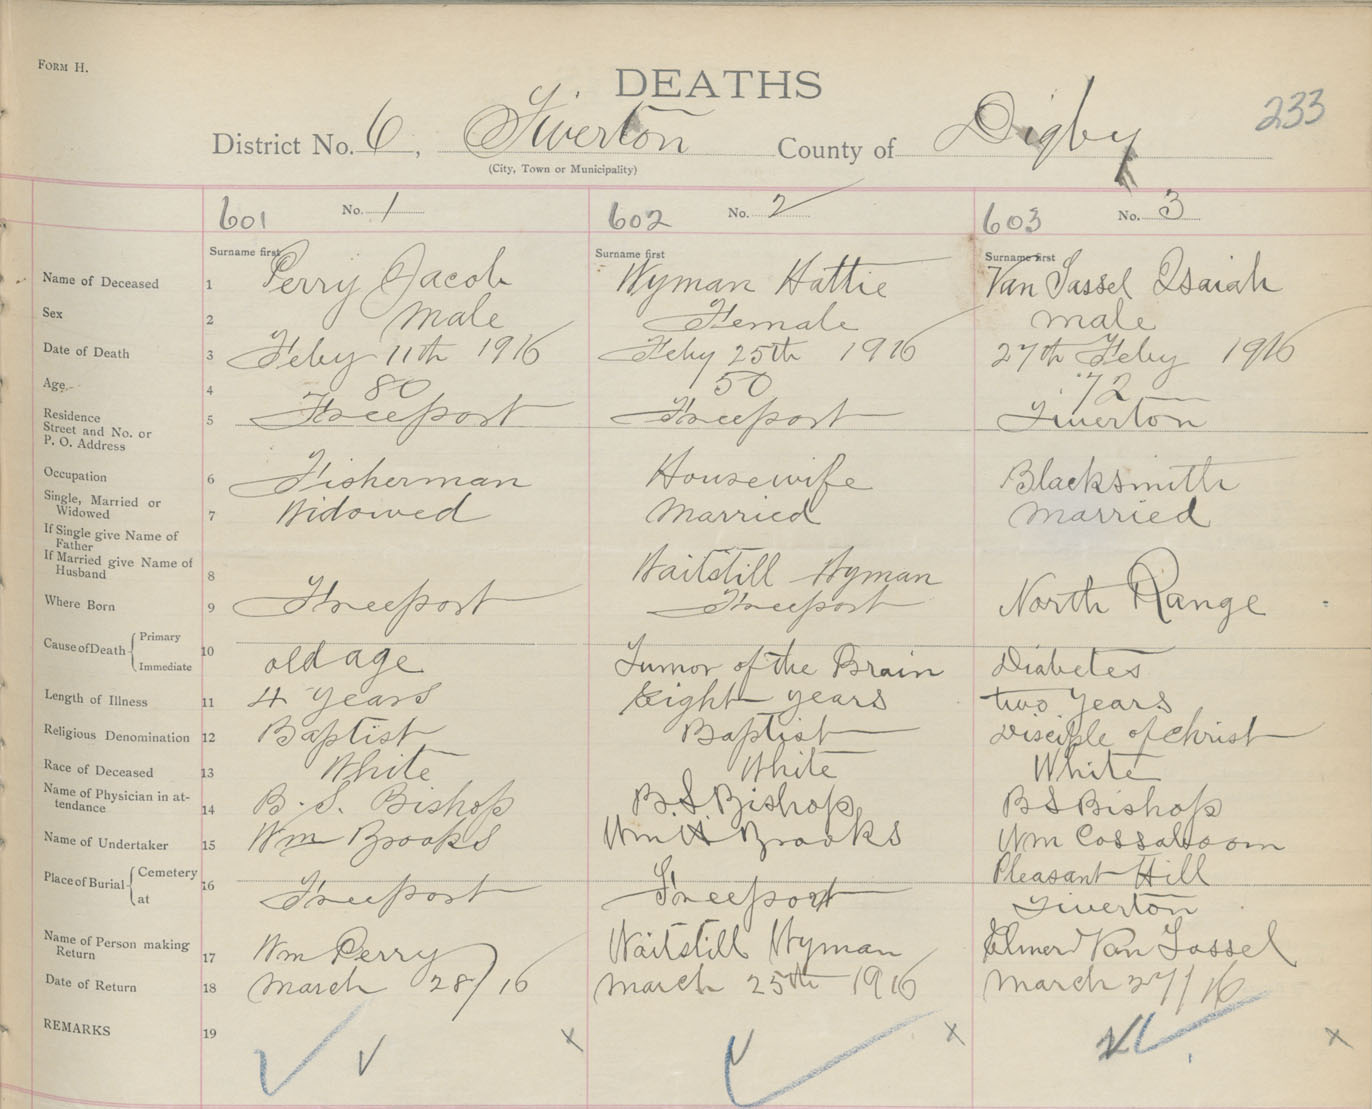 FORM H.
DEATHS
233
District No. 6, Tiverton County of Digby
(City, Town or Municipality)
601 No. 1 602 No. 2 603 No. 3
Surname first Surname first Surname first
Name of Deceased 1 Perry Jacob Wyman Hattie Van Tassel Isaiah
Sex 2 Male Female male
Date of Death 3 Feby 11th 1916 Feby 25th 1916 27th Feby 1916
Age 4 80 50 72
Residence
Street and No. or 5 Freeport Freeport Tiverton
P. O. Address
Occupation 6 Fisherman Housewife Blacksmith
Single, Married or
Widowed 7 Widowed Married Married
If Single give Name of
Father
If Married give Name of
Husband 8 Waitstill Wyman
Where Born 9 Freeport Freeport North Range
Cause of Death { Primary
Immediate 10 old age Tumor of the Brain Diabetes
Length of Illness 11 4 years Eight years two years
Religious Denomination 12 Baptist Baptist Disciple of Christ
Race of Deceased 13 White White White
Name of Physician in at-
tendance 14 B. S. Bishop B. S. Bishop B S Bishop
Name of Undertaker 15 Wm Brooks Wm H. Brooks Wm Cossaboom
Place of Burial { Cemetery 16 Pleasant Hill
at Freeport Freeport Tiverton
Name of Person making
Return 17 Wm Perry Waitstill Wyman Elmer Van Tassel
Date of Return 18 March 28/16 March 25th 1916 March 27/16
REMARKS 19 ✓ ✓ x ✓ ✓ x ✓ ✓ x